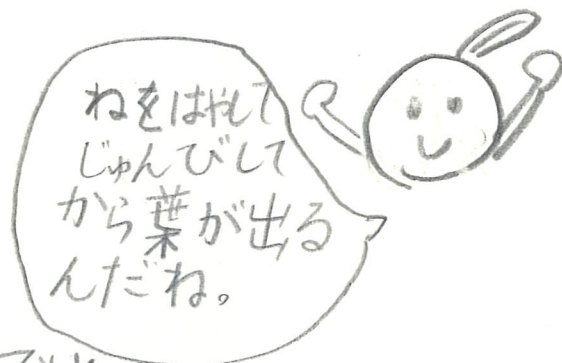 ねをはやして
じゅんびして
から葉が出る
んだね。